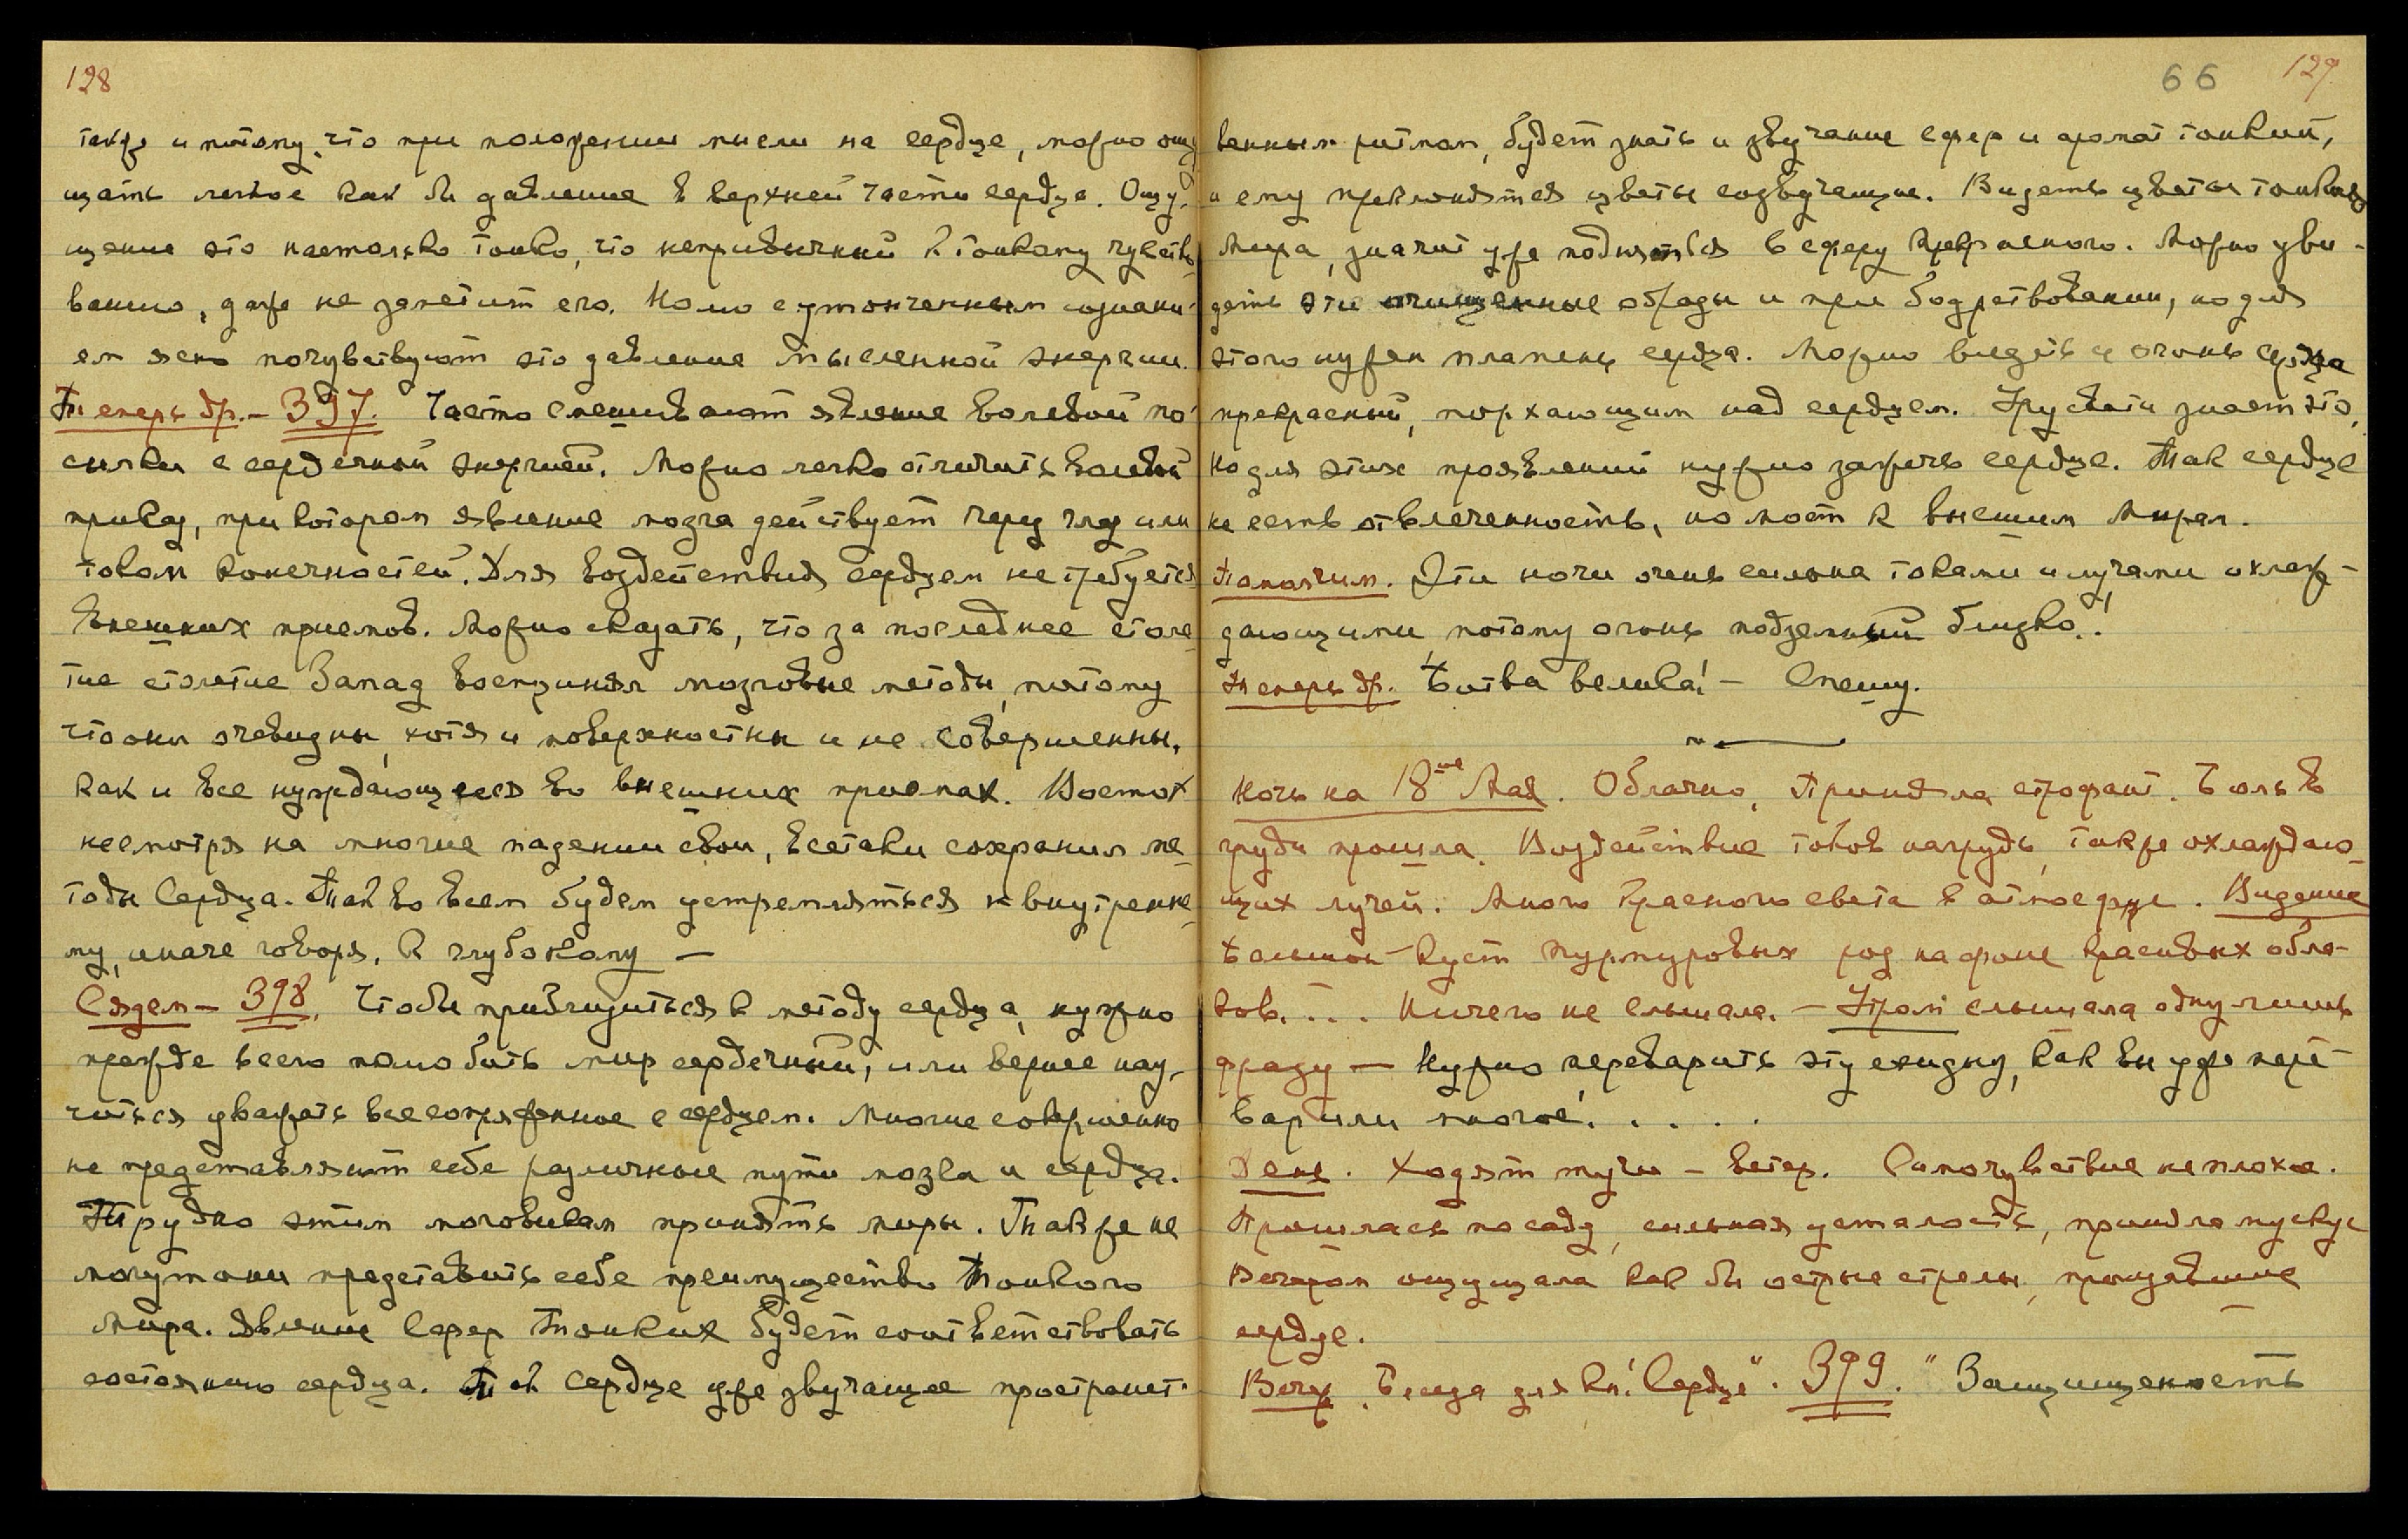 128
также и потому, что при положении мысли на сердце, можно ощу-
щать легкое как бы давление в верхней части сердца. Ощу-
щение это настолько тонко, что непривычный к тонкому чувство-
ванию, даже не заметит его. Но с утонченным сознани-
ем ясно почувствуют это давление мысленной энергии.
Теперь др. – 397. Часто смешивают явление волевой по-
сылки с сердечной энергией. Можно легко отличить волевой
приказ, при котором явление мозга действует через глаз или
током конечностей. Для воздействия сердцем не требуется
внешних приемов. Можно сказать, что за последнее столе-
тие столетие Запад воспринял мозговые методы, потому
что они очевидны, хотя и поверхностны и не совершенны,
как и все нуждающееся во внешних приемах. Восток
несмотря на многие падения свои, всетаки сохранил ме-
тоды Сердца. Так во всем будем устремляться к внутренне-
му, иначе говоря, к глубокому —
Сядем – 398. Чтобы приблизиться к методу сердца, нужно
прежде всего полюбить мир сердечный, или вернее нау-
читься уважать все сопряженное с сердцем. Многие совершенно
не представляют себе различные пути мозга и сердца.
Трудно этим мозговикам принять миры. Также не
могут они представить себе преимущество Тонкого
Мира. Явление Сфер Тонких будет соответствовать
состоянию сердца. Так Сердце уже звучащее пространст-
66 129
венным ритмом, будет знать и звучание сфер и аромат тонкий,
и ему преклонятся цветы созвучащие. Видеть цветы тонкого
Мира, значит уже подняться в сферу Прекрасного. Можно уви-
деть эти очищенные образы и при бодрствовании, но для
этого нужен пламень сердца. Можно видеть и огонь сердца
прекрасный, порхающим над сердцем. Урусвати знает это,
но для этих проявлений нужно зажечь сердце. Так сердце
не есть отвлеченность, но мост к высшим Мирам.
Помолчим. Эти ночи очень сильна токами и лучами охлаж-
дающими, потому огонь подземный близко!.
Теперь др. Битва велика! – Спешу.
Ночь на 18ое Мая. Облачно, Приняла строфант. Боль в
груди прошла. Воздействие токов на грудь, также охлаждаю-
щих лучей. Много Красного света в атмосфере. Видение
Большой куст Пурпуровых роз на фоне красивых обла-
ков. . . . Ничего не слышала. – Утром слышала одну лишь
фразу — Нужно переварить эту ехидну, как вы уже пере-
варили многое!. . . . .
День. Ходят тучи – ветер. Самочувствие не плохое.
Прошлась по саду, сильная усталость, приняла мускус
Вечером ощущала как бы острые стрелы, пронзявшие
сердце.
Вечер. Беседа для Кн. "Сердце". 399. "Защищенность